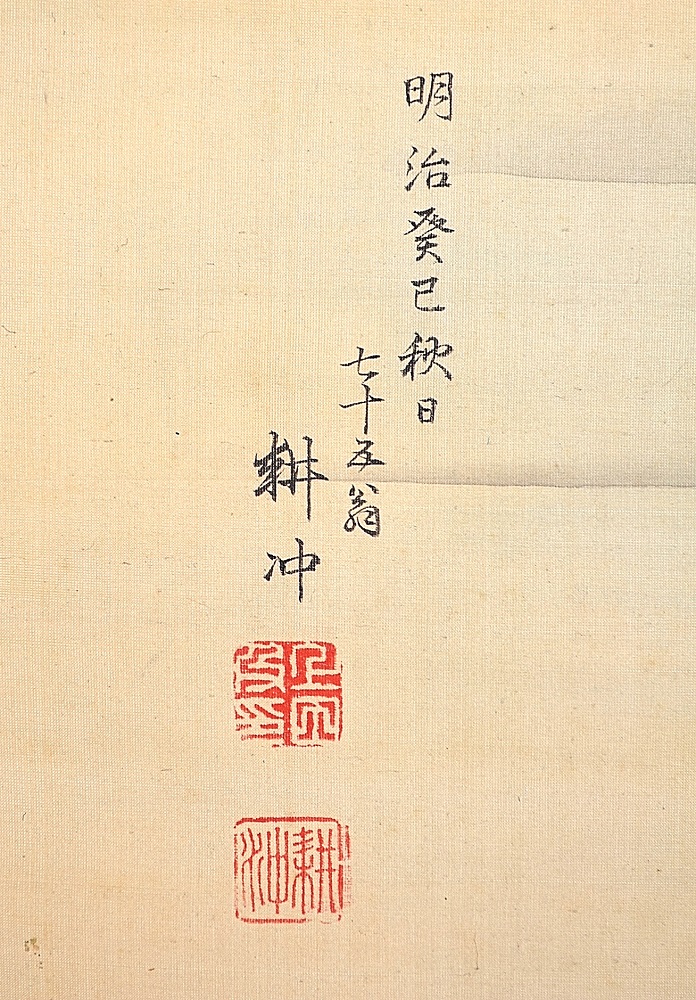 明治癸巳秋日
七十五翁
耕冲
耕沖